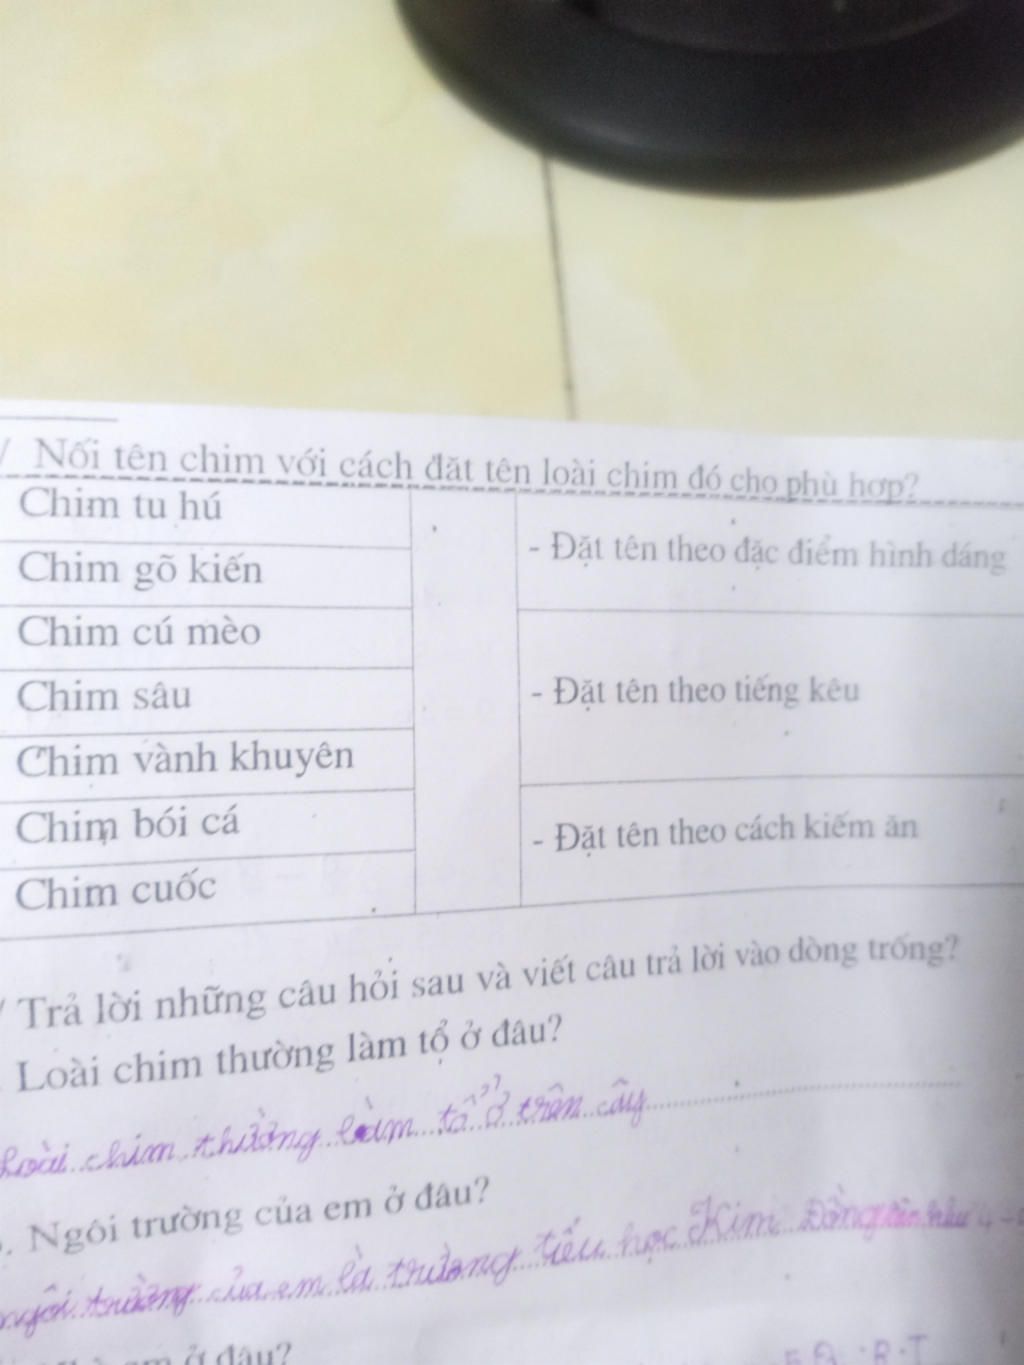 / Nối tên chim với cách đặt tên loài chim đó cho phù hợp?
Chim tu hú
Chim gõ kiến
Chim cú mèo
Chim sâu
Chim vành khuyên
Chim bói cá
Chim cuốc
- Đặt tên theo đặc điểm hình dáng
- Đặt tên theo tiếng kêu
- Đặt tên theo cách kiếm ăn
/ Trả lời những câu hỏi sau và viết câu trả lời vào dòng trống?
Loài chim thường làm tổ ở đâu?
Loài chim thường làm tổ ở trên cây
. Ngôi trường của em ở đâu?
ngôi trường của em là trường tiểu học Kim Đồng
em ở đâu?